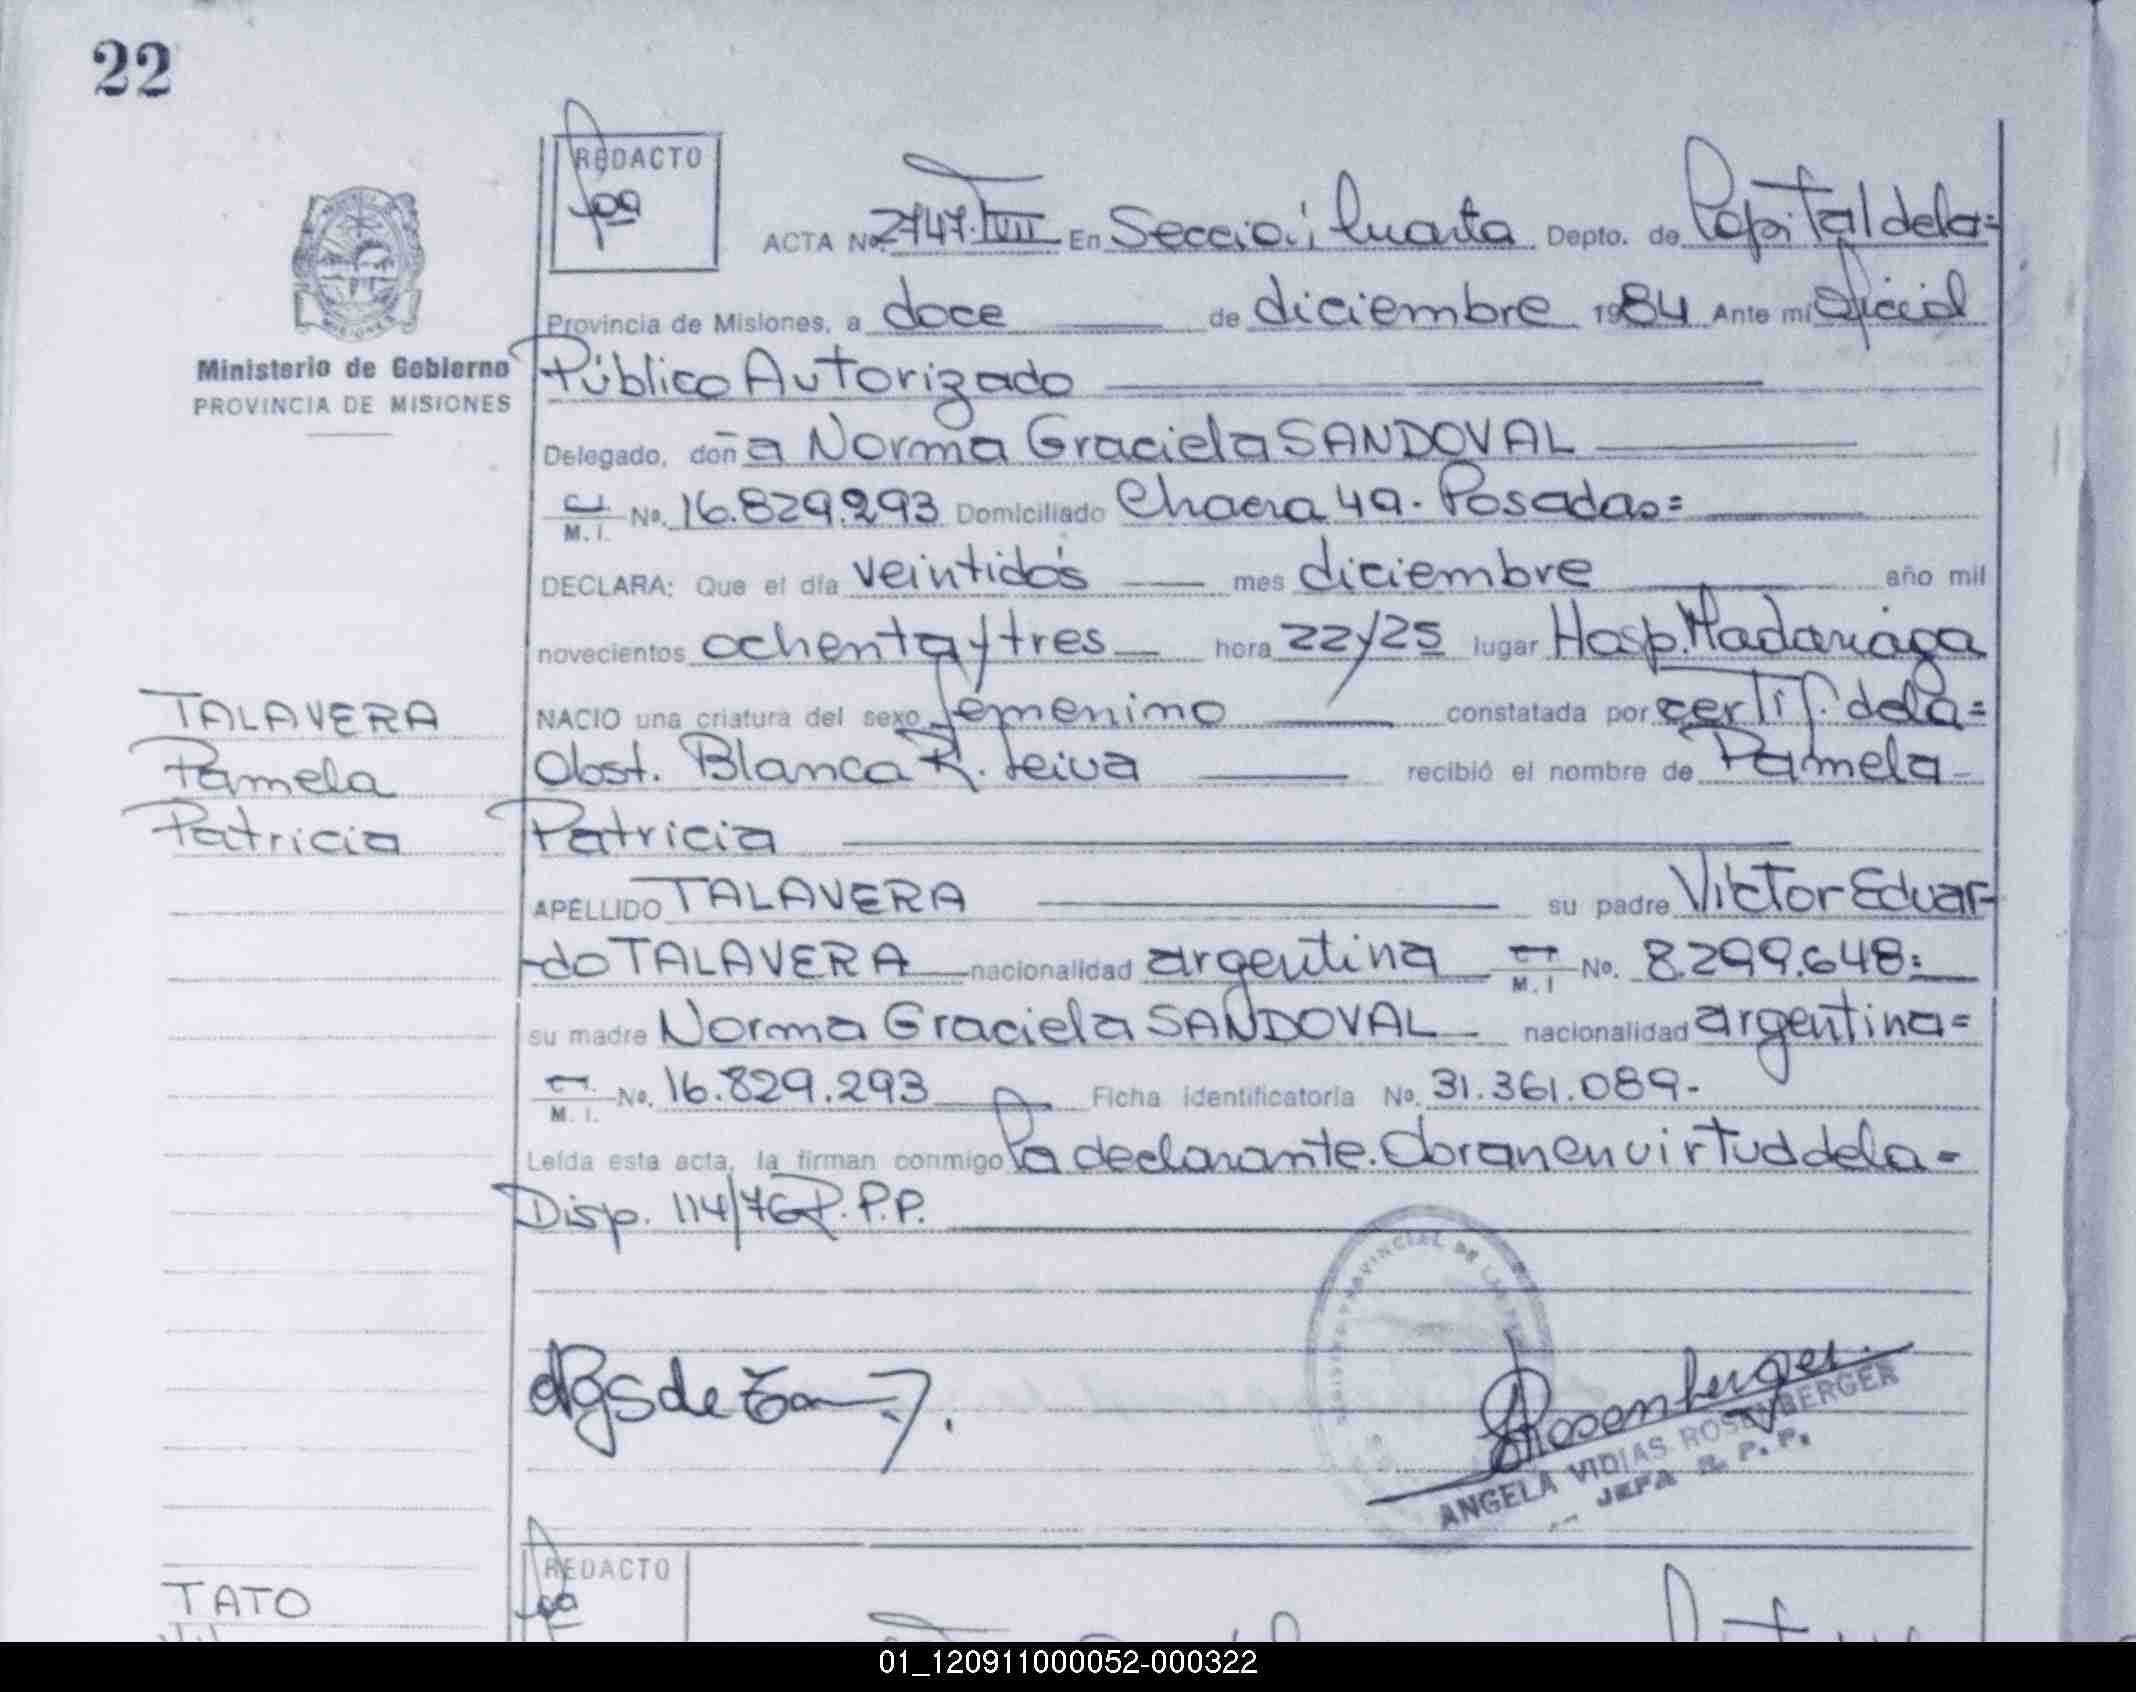 22
REDACTO
ACTA No. 2747. TVIII En Sección Cuarta Depto. de Capital de la=
Provincia de Misiones, a doce de diciembre 1984 Ante mi Oficial
Ministerio de Gobierno
PROVINCIA DE MISIONES
Público Autorizado
Delegado, doña Norma Graciela SANDOVAL
M. I. No. 16.829.293 Domiciliado Chacra 49. Posadas=
DECLARA: Que el día veintidós mes diciembre año mil
novecientos ochenta y tres hora 22y25 lugar Hosp. Madariaga
NACIO una criatura del sexo femenino constatada por certif. de la=
Obst. Blanca R. Leiva recibió el nombre de Pamela
Patricia
TALAVERA
Pamela
Patricia
APELLIDO TALAVERA su padre Victor Eduar-
-do TALAVERA nacionalidad argentina M. I No. 8.299.648=
su madre Norma Graciela SANDOVAL nacionalidad argentina=
M. I. No. 16.829.293 Ficha identificatoria No. 31.361.089-
Leída esta acta, la firman conmigo la declarante. Obran en virtud de la=
Disp. 114/76 R.P.P.
PROVINCIAL DE LAS
Rosenberger
ANGELA VIDIAS ROSENBERGER
JEFA R. P. P.
TATO
REDACTO
01_120911000052-000322